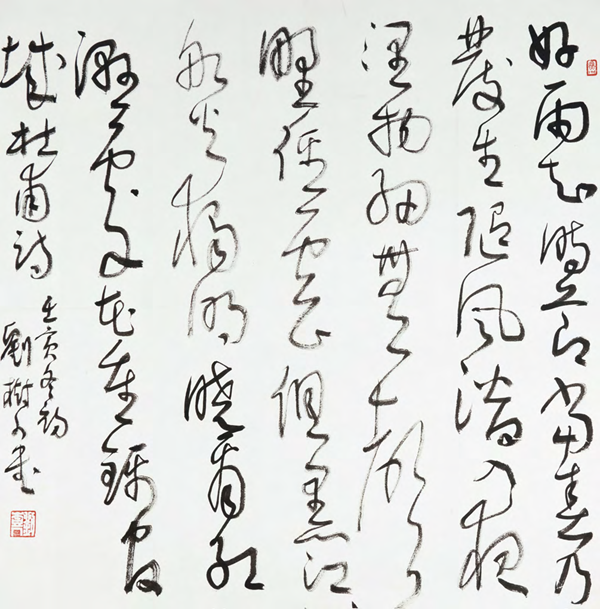 好雨知時節當春乃
發生隨風潛入夜
潤物細無聲
野徑雲俱黑江
船火獨明曉看紅
濕處花重錦官
城杜甫詩
壬寅冬初
劉樹書